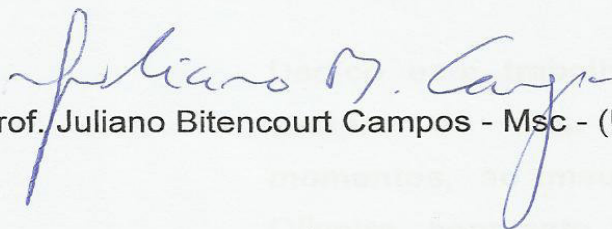 Juliano B. Campos
rof. Juliano Bitencourt Campos - Msc - (